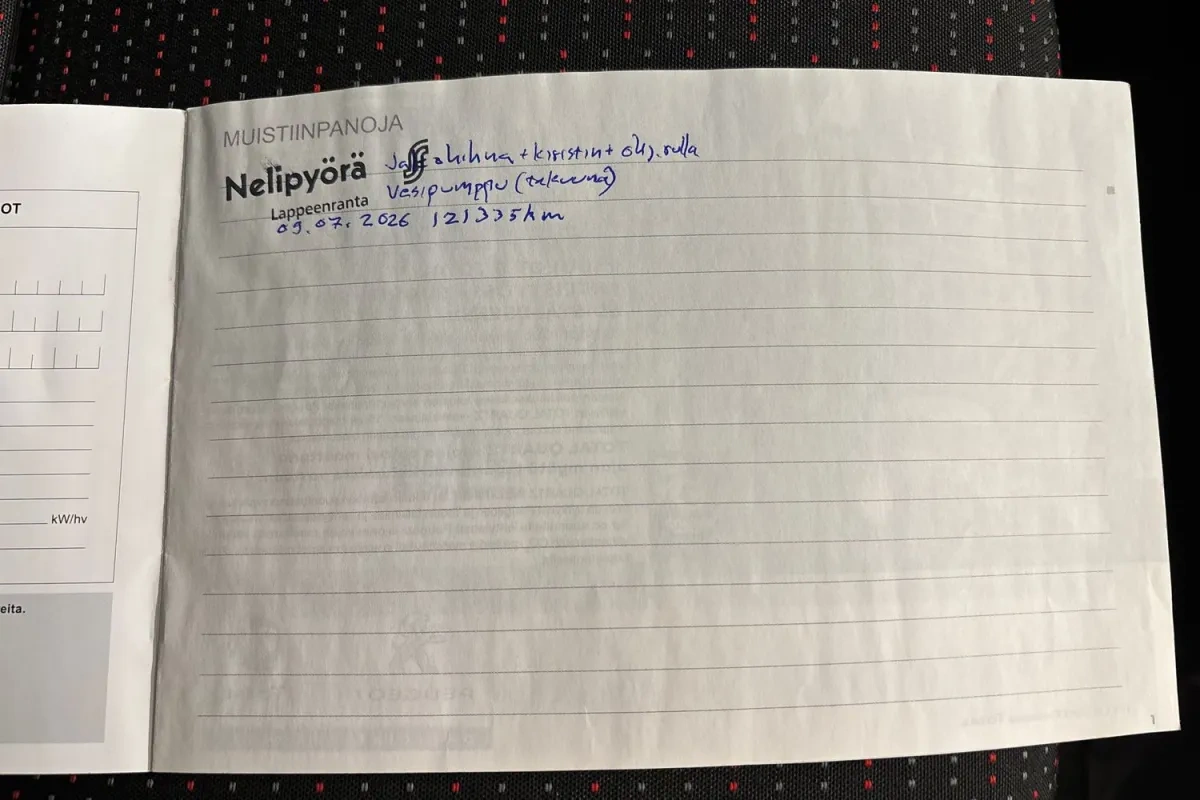 MUISTIINPANOJA
Nelipyörä
Lappeenranta
Jakohihna + kiristin + ohj.rulla
Vesipumppu (takuuna)
09.07.2026 121335km
OT
kW/hv
eita.
1